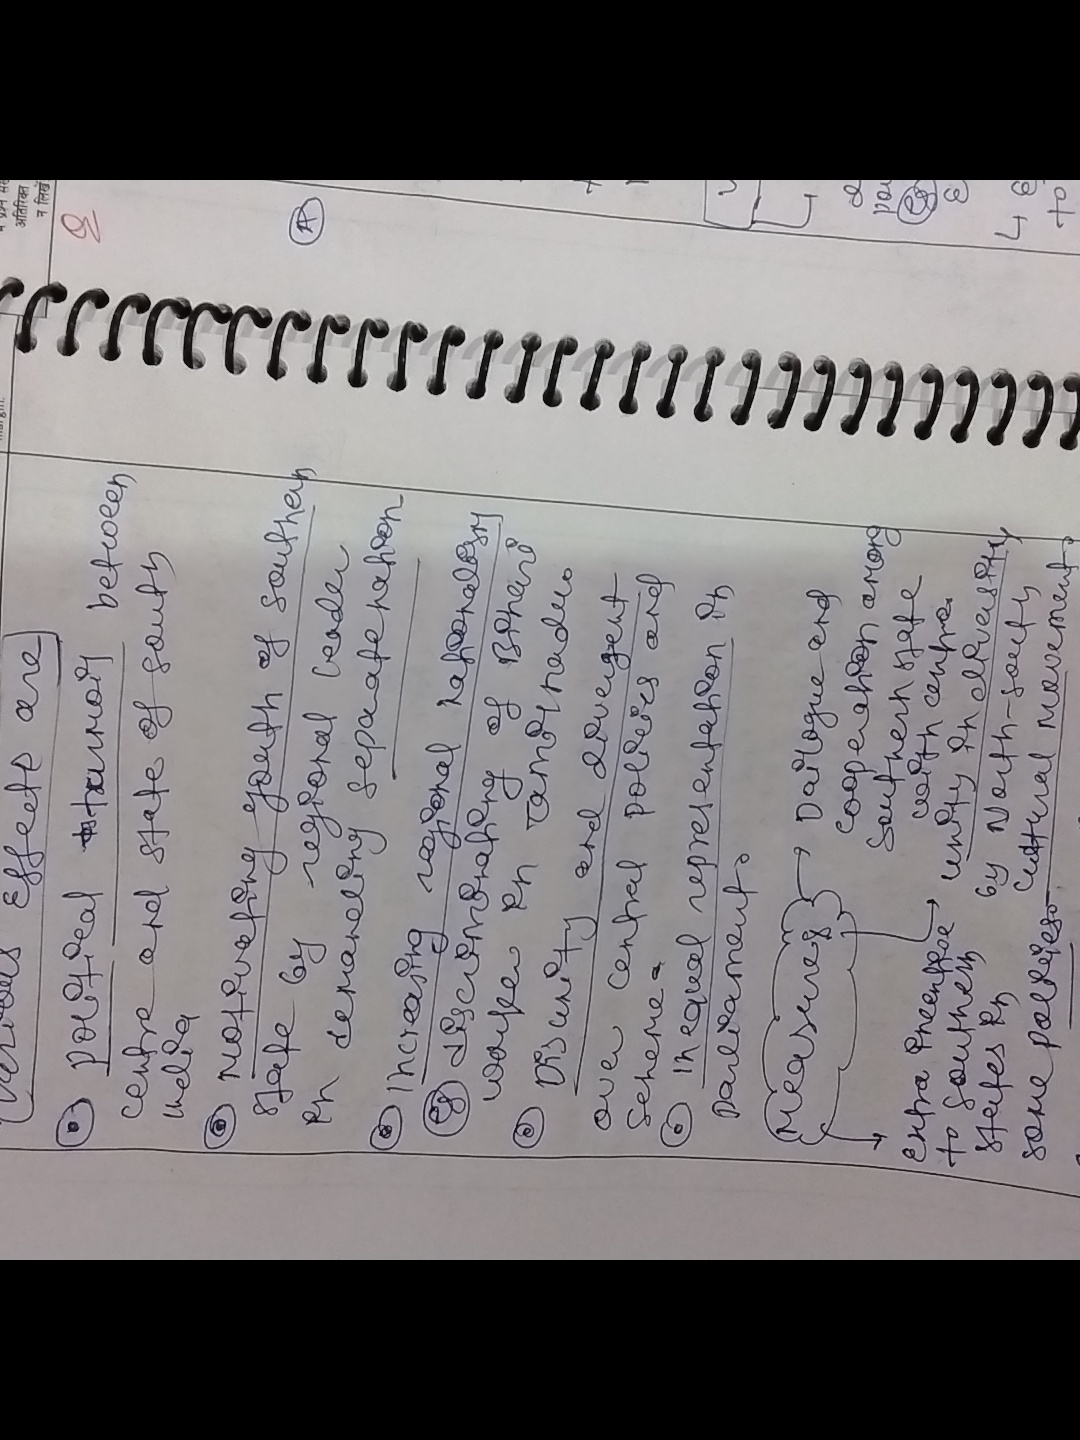 Various effects are
political turmoil between
centre and state of south
India
Motivating youth of southern
state by regional leader
in demanding separate nation
Increasing regional nationalism
eg discriminating of Bihari
worker in Tamilnadu
Disunity and divergent
over central policies and
scheme.
Inequal representation in
parliament.
Measures
Dailogue and
cooperation among
southern state
with centre.
unity in diversity
by North-south
cultural movement.
extra incentive
to southern
states in
some policies.
अतिरिक्त
न लिखें
margin.
A
to